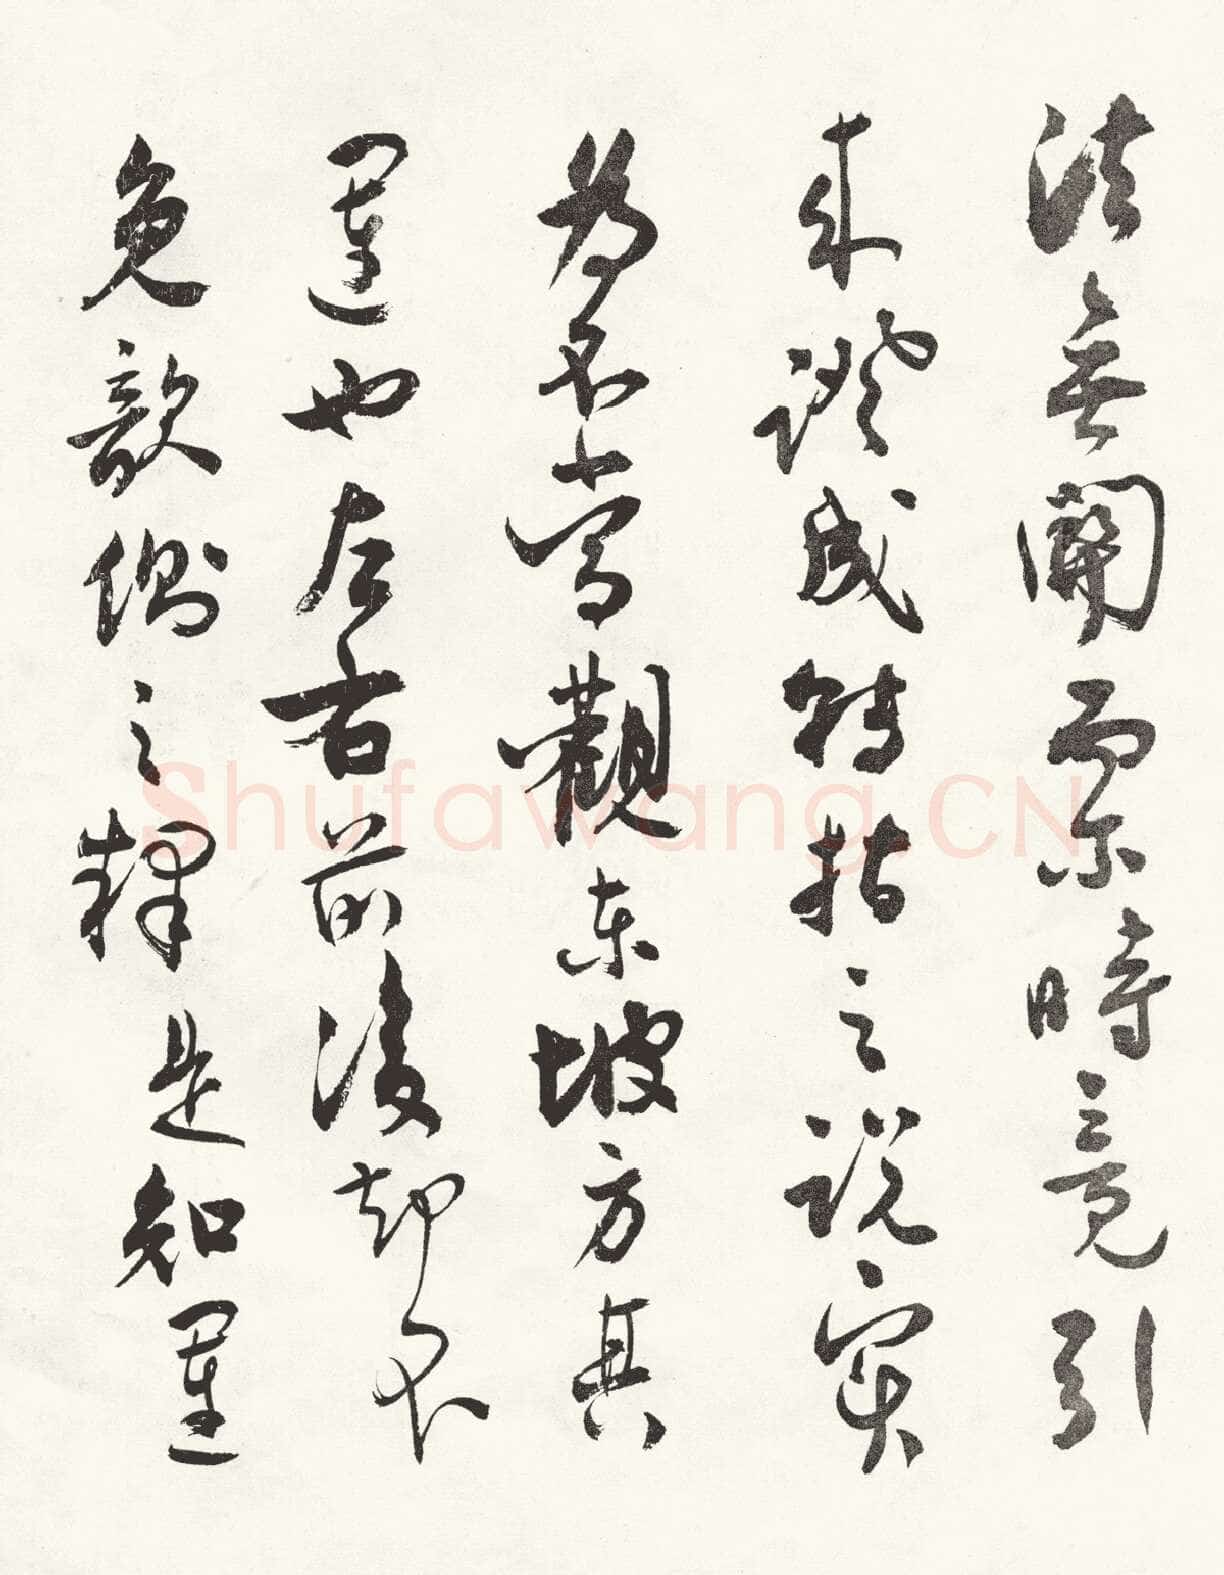 法無關而尔時竟引
來證成轉指之說實
為不當觀東坡方其
運也左右前後却不
免欹側之釋是知運
Shufawang.CN